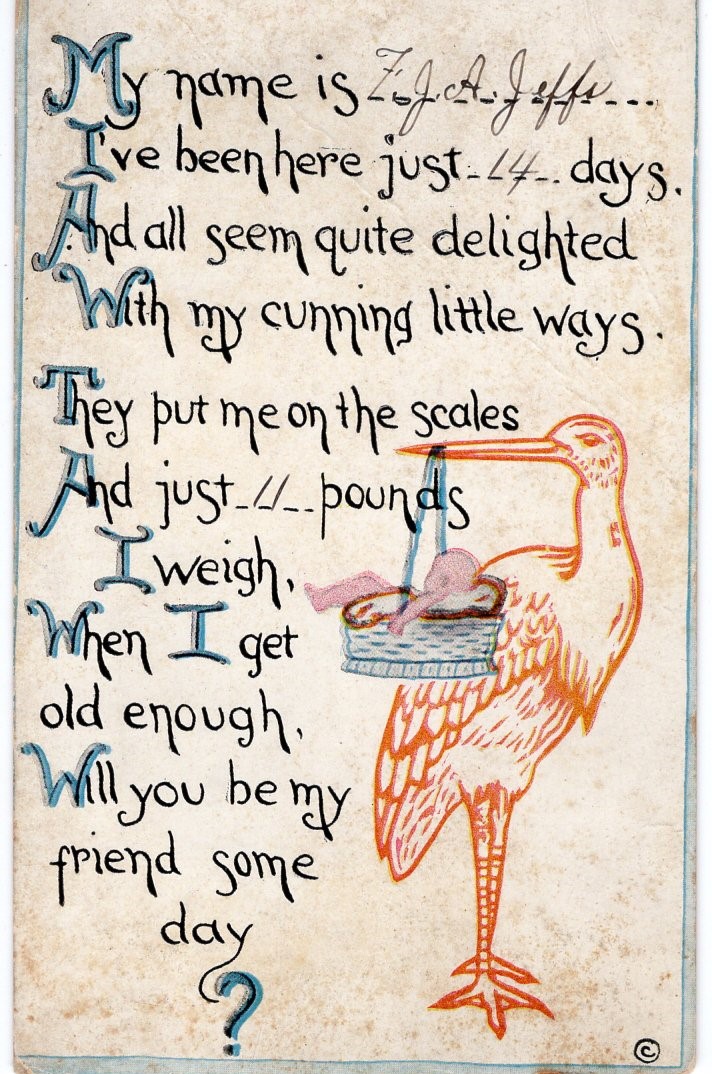 My name is F. J. A. Jeffs
I've been here just 14 days.
And all seem quite delighted
With my cunning little ways.
They put me on the scales
And just 11 pounds
I weigh,
When I get
old enough,
Will you be my
friend some
day
?
©